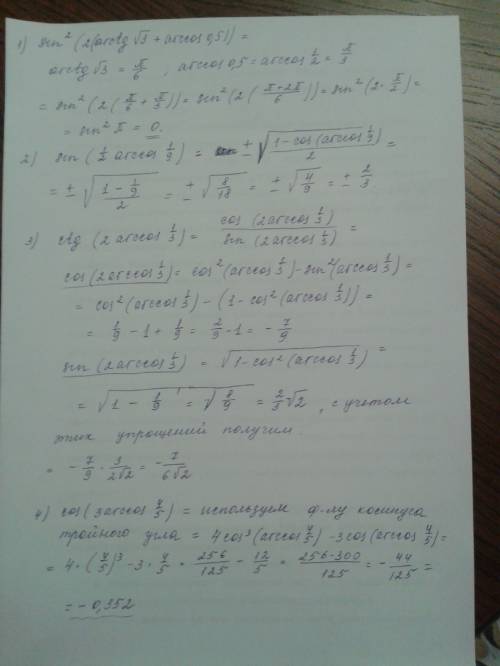 1) sin² (2(arcctg √3 + arccos 0,5)) =
arcctg √3 = π/6 ; arccos 0,5 = arccos 1/2 = π/3
= sin² (2 (π/6 + π/3)) = sin² (2 ( (π+2π)/6 )) = sin² (2 · π/2) =
= sin² π = 0.
2) sin (1/2 arccos 1/9) = ± √((1 - cos(arccos 1/9))/2) =
= ± √((1 - 1/9)/2) = ± √(8/18) = ± √(4/9) = ± 2/3
3) ctg (2 arccos 1/3) = cos (2arccos 1/3) / sin (2arccos 1/3) =
cos(2arccos 1/3) = cos² (arccos 1/3) - sin² (arccos 1/3) =
= cos² (arccos 1/3) - (1 - cos² (arccos 1/3)) =
= 1/9 - 1 + 1/9 = 2/9 - 1 = - 7/9
sin (2arccos 1/3) = √(1 - cos² (arccos 1/3)) =
= √(1 - 1/9) = √(8/9) = 2/3 √2 , с учетом
этих упрощений получим.
= - 7/9 · 3/(2√2) = - 7/(6√2)
4) cos (3 arccos 4/5) = используем ф-лу косинуса
тройного угла = 4cos³ (arccos 4/5) - 3cos (arccos 4/5) =
= 4 · (4/5)³ - 3 · 4/5 = 256/125 - 12/5 = (256-300)/125 = - 44/125 =
= - 0,352